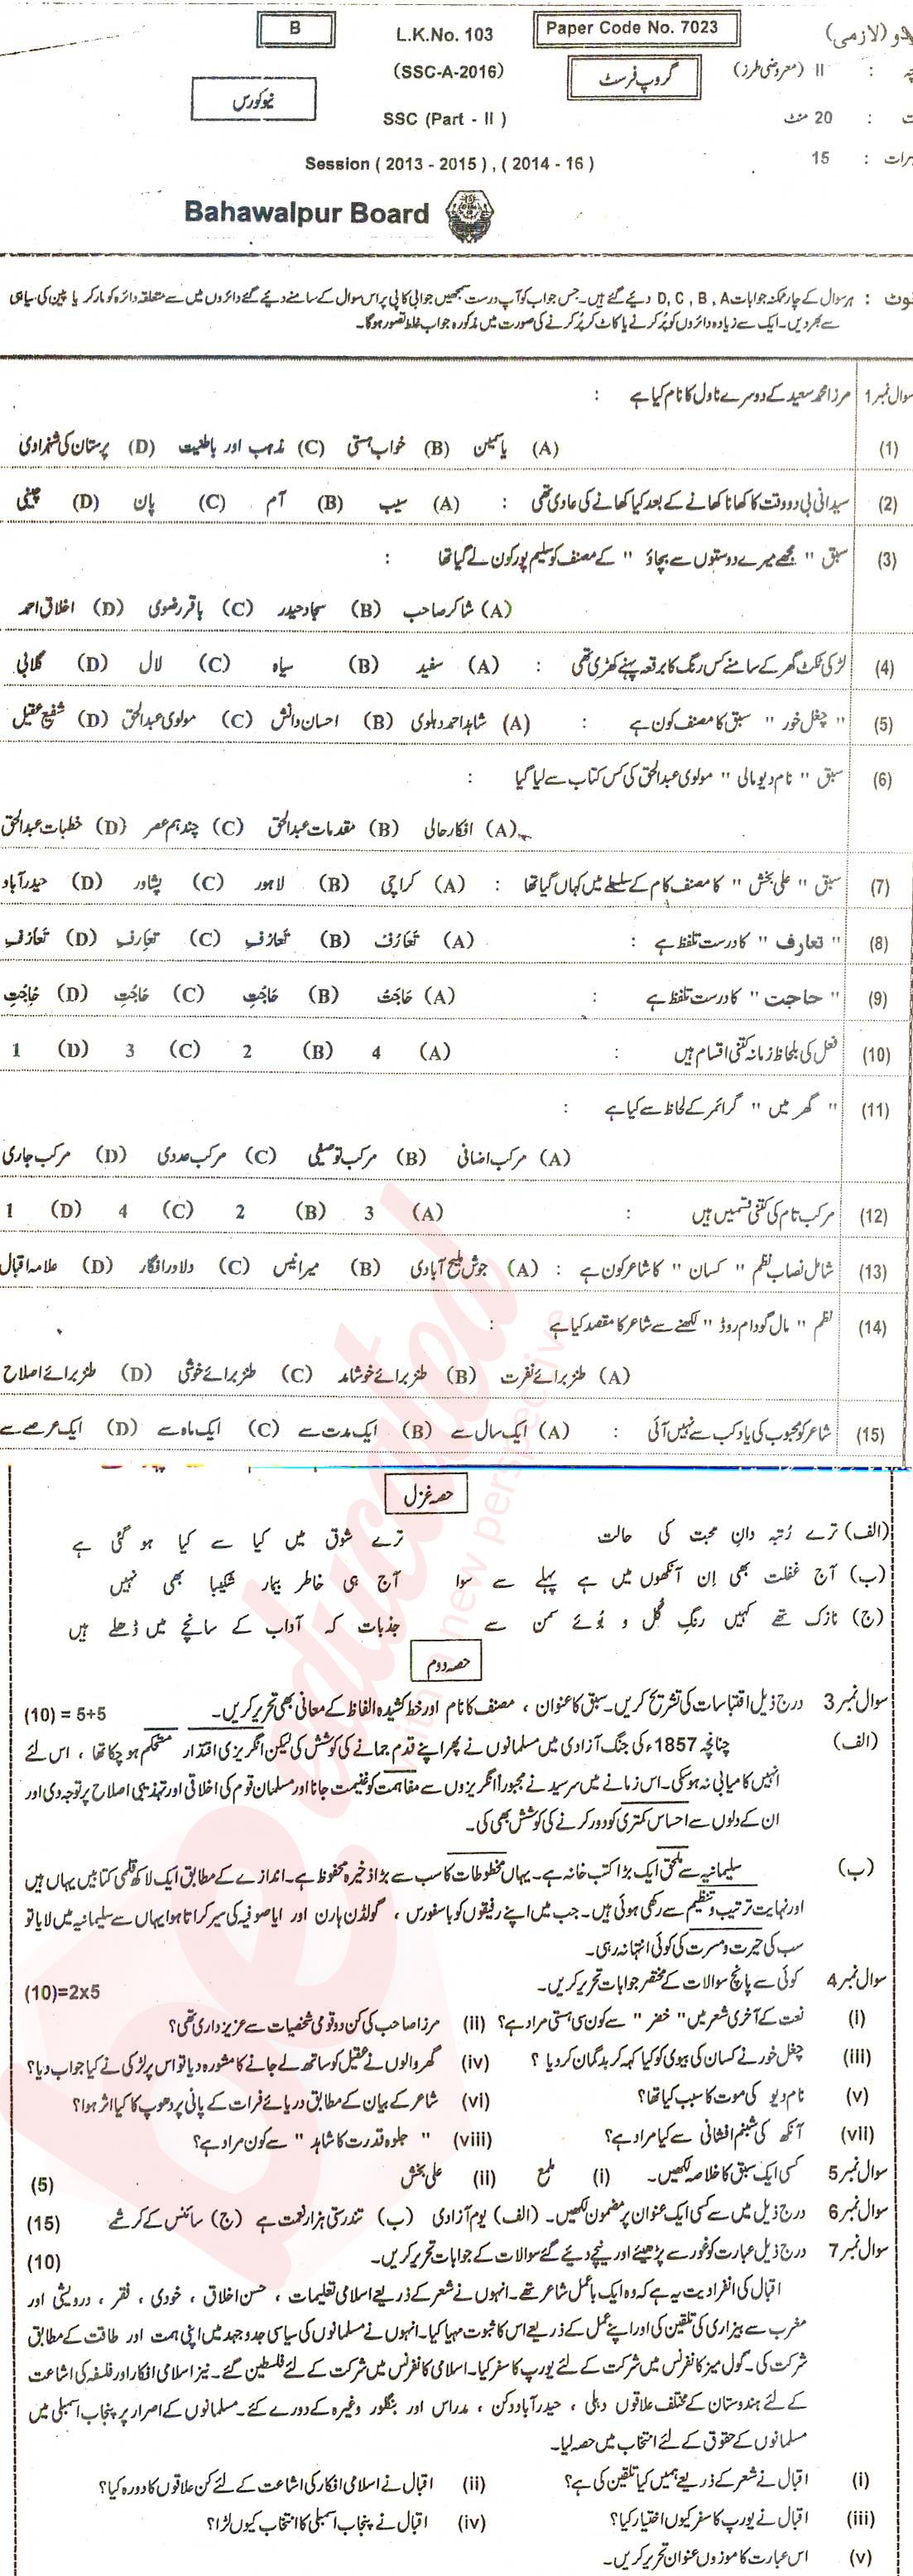 B L.K.No. 103 Paper Code No. 7023 (لازمی)
(SSC-A-2016) گروپ فرسٹ : II (معروضی طرز)
نیو کورس SSC (Part - II) : 20 منٹ
Session ( 2013 - 2015 ) , ( 2014 - 16 ) : 15
Bahawalpur Board
نوٹ : ہر سوال کے چار ممکنہ جوابات D , C , B , A دیئے گئے ہیں۔ جس جواب کو آپ درست سمجھیں جوابی کاپی پر اس سوال کے سامنے دیئے گئے دائروں میں سے متعلقہ دائرہ کو مارکر یا پین کی سیاہی
سے بھر دیں۔ ایک سے زیادہ دائروں کو پُر کرنے یا کاٹ کر پُر کرنے کی صورت میں مذکورہ جواب غلط تصور ہوگا۔
سوال نمبر 1 مرزا محمد سعید کے دوسرے ناول کا نام کیا ہے :
(1) (A) یاسمین (B) خواب ہستی (C) مذہب اور باطنیت (D) پرستان کی شہزادی
(2) سیدانی بی دو وقت کا کھانا کھانے کے بعد کیا کھانے کی عادی تھی : (A) سیب (B) آم (C) پان (D) چینی
(3) سبق " مجھے میرے دوستوں سے بچاؤ " کے مصنف کو سلیم پور کون لے گیا تھا :
(A) شاکر صاحب (B) سجاد حیدر (C) باقر رضوی (D) اخلاق احمد
(4) لڑکی ٹکٹ گھر کے سامنے کس رنگ کا برقعہ پہنے کھڑی تھی : (A) سفید (B) سیاہ (C) لال (D) گلابی
(5) " چغل خور " سبق کا مصنف کون ہے : (A) شاہد احمد دہلوی (B) احسان دانش (C) مولوی عبدالحق (D) شفیع عقیل
(6) سبق " نام دیو مالی " مولوی عبدالحق کی کس کتاب سے لیا گیا :
(A) افکار حالی (B) مقدمات عبدالحق (C) چند ہم عصر (D) خطبات عبدالحق
(7) سبق " علی بخش " کا مصنف کام کے سلسلے میں کہاں گیا تھا : (A) کراچی (B) لاہور (C) پشاور (D) حیدر آباد
(8) " تعارف " کا درست تلفظ ہے : (A) (B) (C) (D)
(9) " حاجت " کا درست تلفظ ہے : (A) (B) (C) (D)
(10) فعل کی بلحاظ زمانہ کتنی اقسام ہیں : (A) 4 (B) 2 (C) 3 (D) 1
(11) " گھر میں " گرائمر کے لحاظ سے کیا ہے :
(A) مرکب اضافی (B) مرکب توصیفی (C) مرکب عددی (D) مرکب جاری
(12) مرکب تام کی کتنی قسمیں ہیں : (A) 3 (B) 2 (C) 4 (D) 1
(13) شامل نصاب نظم " کسان " کا شاعر کون ہے : (A) جوش ملیح آبادی (B) میر انیس (C) دلاور افگار (D) علامہ اقبال
(14) نظم " مال گودام روڈ " لکھنے سے شاعر کا مقصد کیا ہے :
(A) طنز برائے نفرت (B) طنز برائے خوشامد (C) طنز برائے خوشی (D) طنز برائے اصلاح
(15) شاعر کو محبوب کی یاد کب سے نہیں آئی : (A) ایک سال سے (B) ایک مدت سے (C) ایک ماہ سے (D) ایک عرصے سے
حصہ غزل
(الف) ترے رُتبہ دانِ محبت کی حالت ترے شوق میں کیا سے کیا ہو گئی ہے
(ب) آج غفلت بھی اِن آنکھوں میں ہے پہلے سے سوا آج ہی خاطر بیمار شکیبا بھی نہیں
(ج) نازک تھے کہیں رنگِ گُل و بُوئے سمن سے جذبات کہ آداب کے سانچے میں ڈھلے ہیں
حصہ دوم
سوال نمبر 3 درج ذیل اقتباسات کی تشریح کریں۔ سبق کا عنوان ، مصنف کا نام اور خط کشیدہ الفاظ کے معانی بھی تحریر کریں۔ 5+5 = (10)
(الف) چنانچہ 1857ء کی جنگ آزادی میں مسلمانوں نے پھر اپنے قدم جمانے کی کوشش کی لیکن انگریزی اقتدار مستحکم ہو چکا تھا ، اس لئے
انہیں کامیابی نہ ہو سکی۔ اس زمانے میں سر سید نے مجبوراً انگریزوں سے مفاہمت کو غنیمت جانا اور مسلمان قوم کی اخلاقی اور تہذیبی اصلاح پر توجہ دی اور
ان کے دلوں سے احساس کمتری کو دور کرنے کی کوشش بھی کی۔
(ب) سلیمانیہ سے ملحق ایک بڑا کتب خانہ ہے۔ یہاں مخطوطات کا سب سے بڑا ذخیرہ محفوظ ہے۔ اندازے کے مطابق ایک لاکھ قلمی کتابیں یہاں ہیں
اور نہایت ترتیب و تنظیم سے رکھی ہوئی ہیں۔ جب میں اپنے رفیقوں کو باسفورس ، گولڈن ہارن اور ایا صوفیہ کی سیر کراتا ہوا یہاں سے سلیمانیہ میں لایا تو
سب کی حیرت و مسرت کی کوئی انتہا نہ رہی۔
سوال نمبر 4 کوئی سے پانچ سوالات کے مختصر جوابات تحریر کریں۔ 2x5=(10)
(i) نعت کے آخری شعر میں " خضر " سے کون سی ہستی مراد ہے؟ (ii) مرزا صاحب کی کن دو قومی شخصیات سے عزیز داری تھی؟
(iii) چغل خور نے کسان کی بیوی کو کیا کہہ کر بدگمان کر دیا ؟ (iv) گھر والوں نے عقیل کو ساتھ لے جانے کا مشورہ دیا تو اس پر لڑکی نے کیا جواب دیا؟
(v) نام دیو کی موت کا سبب کیا تھا؟ (vi) شاعر کے بیان کے مطابق دریائے فرات کے پانی پر دھوپ کا کیا اثر ہوا؟
(vii) آنکھ کی شبنم افشانی سے کیا مراد ہے؟ (viii) " جلوہ قدرت کا شاہد " سے کون مراد ہے؟
سوال نمبر 5 کسی ایک سبق کا خلاصہ لکھیں۔ (i) ملمع (ii) علی بخش (5)
سوال نمبر 6 درج ذیل میں سے کسی ایک عنوان پر مضمون لکھیں۔ (الف) یوم آزادی (ب) تندرستی ہزار نعمت ہے (ج) سائنس کے کرشمے (15)
سوال نمبر 7 درج ذیل عبارت کو غور سے پڑھیئے اور نیچے دیئے گئے سوالات کے جوابات تحریر کریں۔ (10)
اقبال کی انفرادیت یہ ہے کہ وہ ایک باعمل شاعر تھے۔ انہوں نے شعر کے ذریعے اسلامی تعلیمات ، حسن اخلاق ، خودی ، فقر ، درویشی اور
مغرب سے بیزاری کی تلقین کی اور اپنے عمل کے ذریعے اس کا ثبوت مہیا کیا۔ انہوں نے مسلمانوں کی سیاسی جدوجہد میں اپنی ہمت اور طاقت کے مطابق
شرکت کی۔ گول میز کانفرنس میں شرکت کے لئے یورپ کا سفر کیا۔ اسلامی کانفرنس میں شرکت کے لئے فلسطین گئے۔ نیز اسلامی افکار اور فلسفہ کی اشاعت
کے لئے ہندوستان کے مختلف علاقوں دہلی ، حیدر آباد دکن ، مدراس اور بنگلور وغیرہ کے دورے کئے۔ مسلمانوں کے اصرار پر پنجاب اسمبلی میں
مسلمانوں کے حقوق کے لئے انتخاب میں حصہ لیا۔
(i) اقبال نے شعر کے ذریعے ہمیں کیا تلقین کی ہے؟ (ii) اقبال نے اسلامی افکار کی اشاعت کے لئے کن علاقوں کا دورہ کیا؟
(iii) اقبال نے یورپ کا سفر کیوں اختیار کیا؟ (iv) اقبال نے پنجاب اسمبلی کا انتخاب کیوں لڑا؟
(v) اس عبارت کا موزوں عنوان تحریر کریں۔